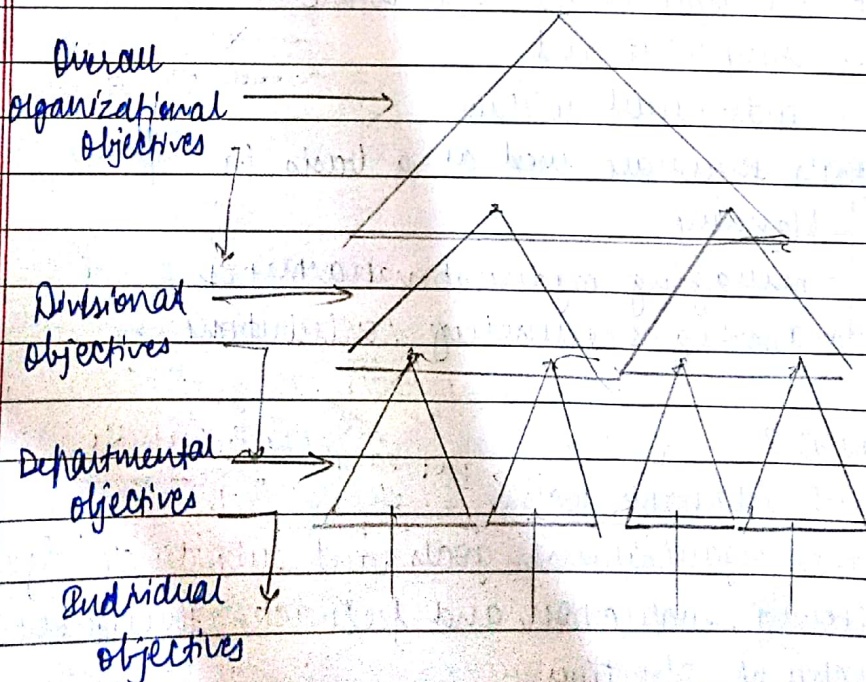 Overall
organizational
objectives
Divisional
objectives
Departmental
objectives
Individual
objectives